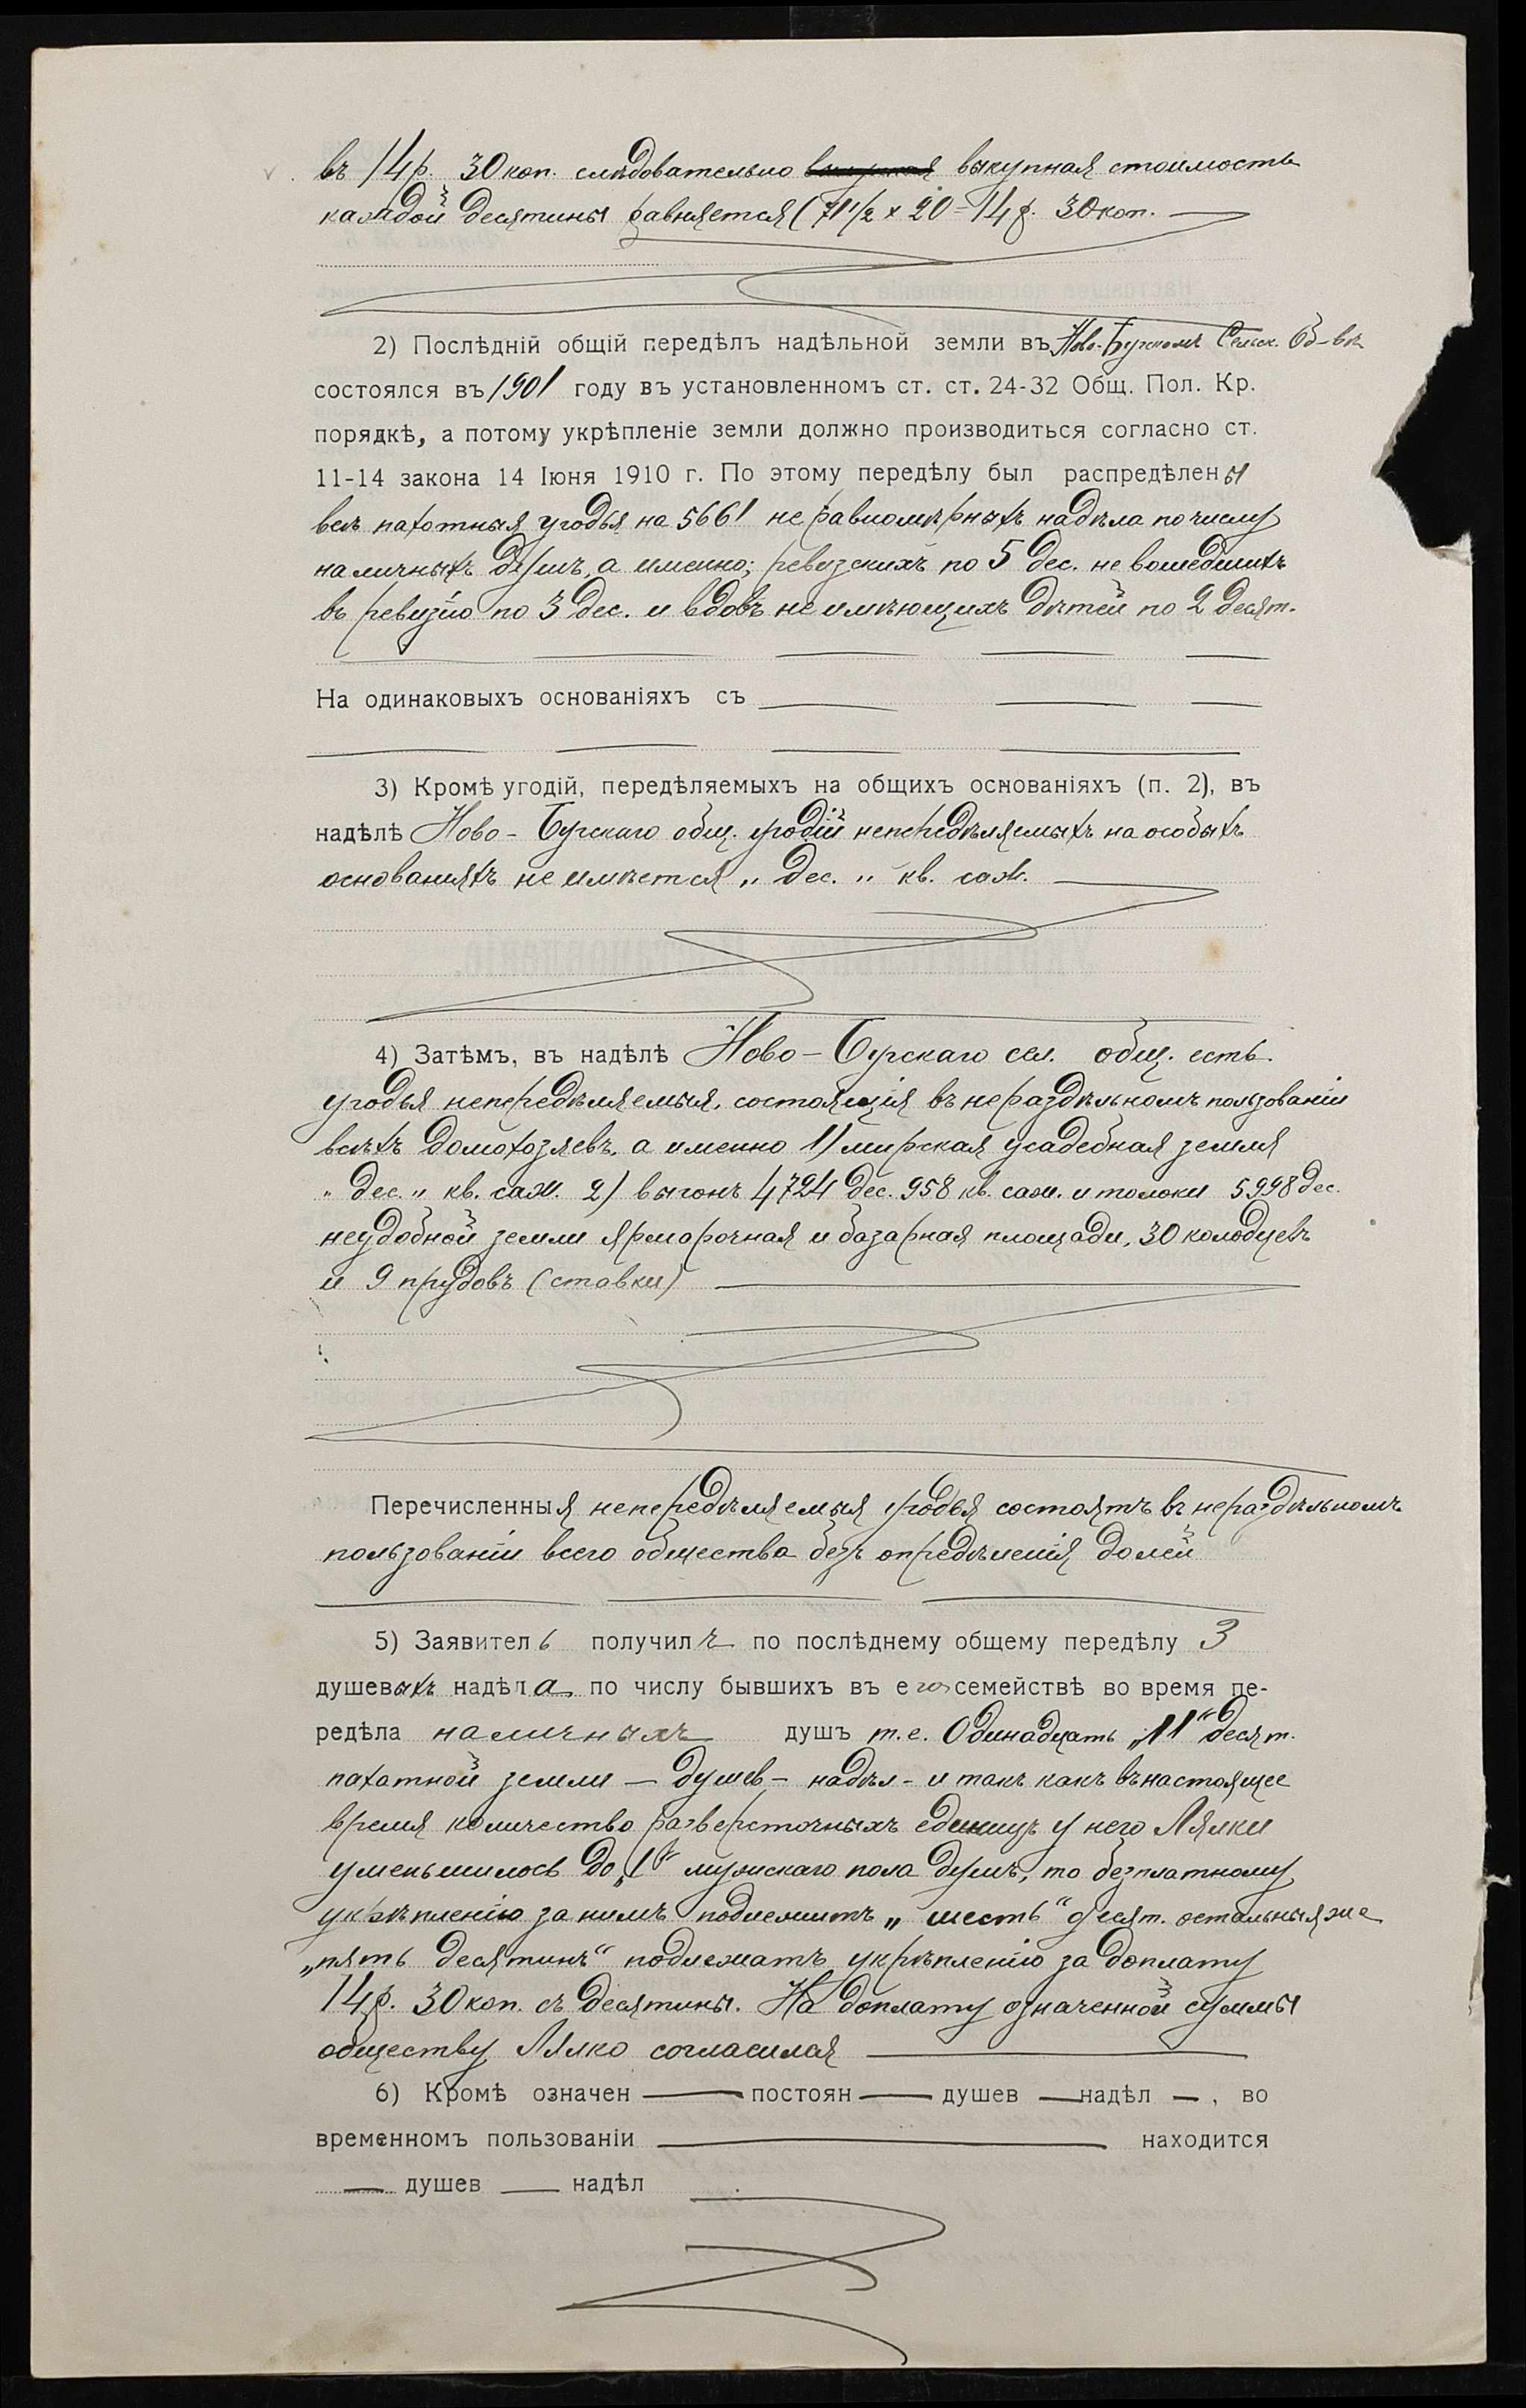 въ 14 р. 30 коп. слѣдовательно выкупная стоимость
каждой десятины равняется (71 1/2 х 20 = 14 р. 30 коп.
2) Послѣдній общій передѣлъ надѣльной земли въ Ново-Бугскомъ Сельск. Об-вѣ
состоялся въ 1901 году въ установленномъ ст. ст. 24-32 Общ. Пол. Кр.
порядкѣ, а потому укрѣпленіе земли должно производиться согласно ст.
11-14 закона 14 Іюня 1910 г. По этому передѣлу был распредѣлены
всѣ пахотныя угодья на 5661 неравномѣрныхъ надѣла по числу
наличныхъ душъ, а именно; ревизскихъ по 5 дес. не вошедшихъ
въ ревизію по 3 дес. и вдовъ не имѣющихъ дѣтей по 2 десят.
На одинаковыхъ основаніяхъ съ
3) Кромѣ угодій, передѣляемыхъ на общихъ основаніяхъ (п. 2), въ
надѣлѣ Ново-Бугскаго общ. угодій непередѣляемыхъ на особыхъ
основаніяхъ не имѣется „ дес. „ кв. саж.
4) Затѣмъ, въ надѣлѣ Ново-Бугскаго сел. общ. есть
угодья непередѣляемыя, состоящія въ нераздѣльномъ пользованіи
всѣхъ домохозяевъ, а именно 1) мирская усадебная земля
„ дес. „ кв. саж. 2) выгонъ 4724 дес. 958 кв. саж. и толоки 5998 дес.
неудобной земли ярморочная и базарная площади, 30 колодцевъ
и 9 прудовъ (ставки)
Перечисленныя непередѣляемыя угодья состоятъ въ нераздѣльномъ
пользованіи всего общества безъ опредѣленія долей
5) Заявитель получилъ по послѣднему общему передѣлу 3
душевыхъ надѣла по числу бывшихъ въ его семействѣ во время пе-
редѣла наличныхъ душъ т.е. Одинадцать „11“ десят.
пахатной земли — душев — надѣл — и такъ какъ въ настоящее
время количество разверсточныхъ единицъ у него Лялки
уменьшилось до „1“ мужскаго пола душъ, то безплатному
укрѣпленію за нимъ подлежитъ „шесть“ десят. остальныя же
„пять десятинъ“ подлежатъ укрѣпленію за доплату
14 р. 30 коп. съ десятины. На доплату означенной суммы
обществу Лялко согласился
6) Кромѣ означен — постоян — душев — надѣл — , во
временномъ пользованіи — находится
— душев — надѣл